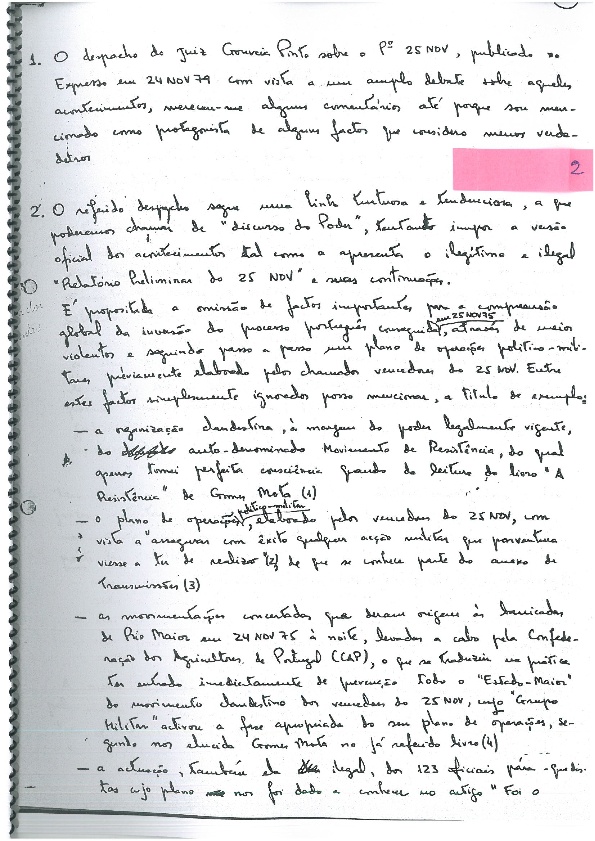 1. O despacho do juiz Gouveia Pinto sobre o Pº 25 NOV, publicado no
Expresso em 24 NOV 79 com vista a um amplo debate sobre aqueles
acontecimentos, merecem-me alguns comentários até porque sou men-
cionado como protagonista de alguns factos que considero menos verda-
deiros
2
2. O referido despacho segue uma linha tortuosa e tendenciosa, a que
poderemos chamar de "discurso do Poder", tentando impor a versão
oficial dos acontecimentos tal como a apresenta o ilegítimo e ilegal
"Relatório Preliminar do 25 NOV" e suas continuações.
É propositada a omissão de factos importantes para a compreensão
global da invasão do processo português conseguida, em 25 NOV 75, através de meios
violentos e seguindo passo a passo um plano de operações politico-mili-
tares préviamente elaborado pelos chamados vencedores do 25 NOV. Entre
estes factos simplesmente ignorados posso mencionar, a título de exemplo:
— a organização clandestina, à margem do poder legalmente vigente,
do auto-denominado Movimento de Resistência, do qual
apenas tomei perfeita consciência quando da leitura do livro "A
Resistência" de Gomes Mota (1)
— o plano de operações politico-militar, elaborado pelos vencedores do 25 NOV, com
vista a "assegurar com êxito qualquer acção militar que porventura
viesse a ter de realizar" (2) de que se conhece parte do anexo de
Transmissões (3)
— as movimentações concertadas que deram origem às barricadas
de Rio Maior em 24 NOV 75 à noite, levadas a cabo pela Confede-
ração dos Agricultores de Portugal (CAP), o que se traduziu na prática
ter entrado imediatamente de prevenção todo o "Estado-Maior"
do movimento clandestino dos vencedores do 25 NOV, cujo "Grupo
Militar" activou a fase apropriada do seu plano de operações, se-
gundo nos elucida Gomes Mota no já referido livro (4)
— a actuação, também ela ilegal, dos 123 oficiais pára-quedis-
tas cujo plano nos foi dado a conhecer no artigo "Foi o